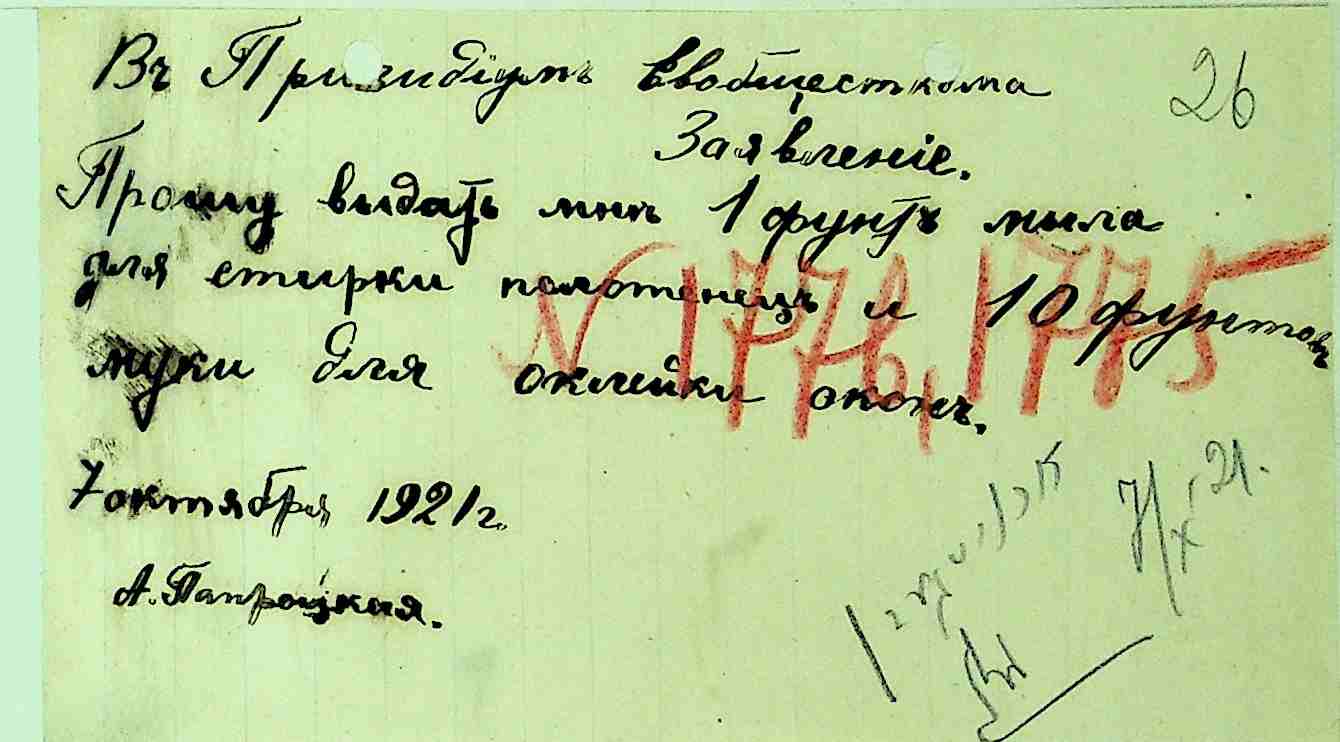 26
Въ Призидіумъ Евобщесткома
Заявленіе.
Прошу выдать мнѣ 1 фунтъ мыла
для стирки полотенецъ и 10 фунтовъ
муки для оклейки оконъ.
N 1776, 1775
7 октября 1921 г.
А. Папроцкая.
7/X 21.